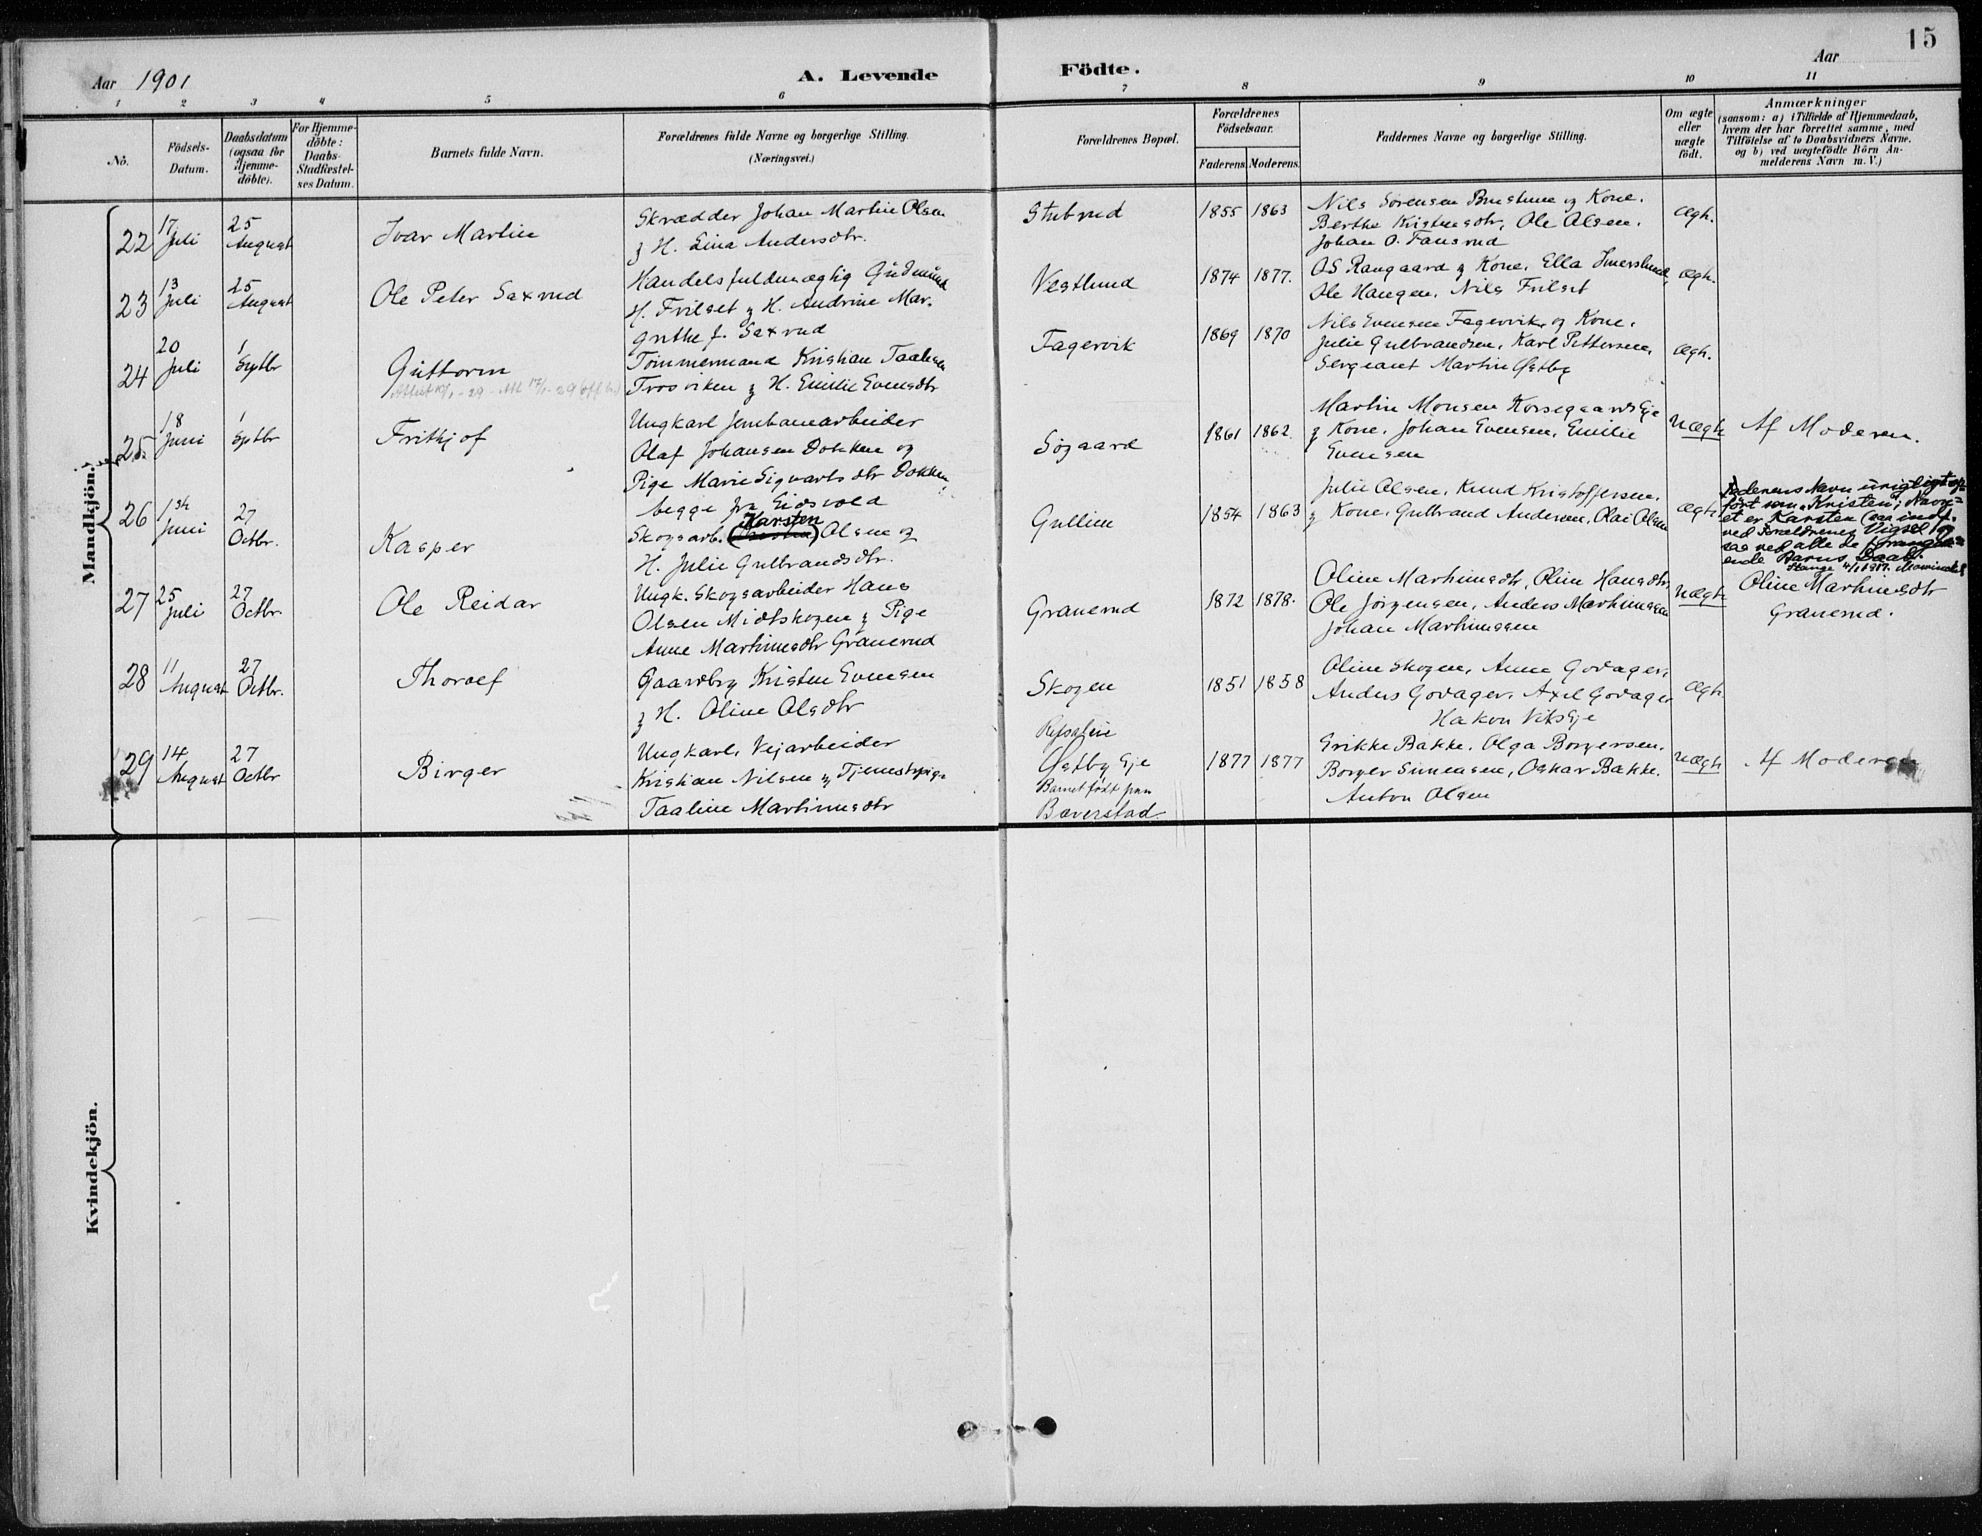 15
Aar 1901 A. Levende Födte. Aar
1 2 3 4 5 6 7 8 9 10 11
No.
Födsels-Datum.
Daabsdatum (ogsaa for Hjemme-döbte).
For Hjemme-döbte: Daabs-Stadfæstel-ses Datum.
Barnets fulde Navn.
Forældrenes fulde Navne og borgerlige Stilling.
(Næringsvei.)
Forældrenes Bopæl.
Forældrenes Födselsaar.
Faderens. Moderens.
Faddernes Navne og borgerlige Stilling.
Om ægte eller uægte födt.
Anmærkninger
(saasom: a) i Tilfælde af Hjemmedaab,
hvem der har forrettet samme, med
Tilföielse af to Daabsvidners Navne,
og b) ved uægtefödte Börn An-
melderens Navn m. V.)
Mandkjön.
22 17 Juli 25 August Ivar Martin
Skrædder Johan Martin Olsen
& H. Lina Andersdtr.
Stubrud 1855 1863
Nils Sørensen og Kone.
Berthe Kristensdtr, Ole Olsen.
Johan O. Fansrud
Ægte.
23 13 Juli 25 August Ole Peter Saxrud
Handelsfuldmægtig Gudmund
H. Frilset & H. Andrine Mar-
grethe f. Saxrud
Vestlund 1874 1877.
OS Rangaard & Kone, Ella Imerslund,
Ole Haugen, Nils Frilset
Ægt.
24 20 Juli 1 Septbr Guttorm
Tömmermand Kristian Taalesen
Trosviken & H. Emilie Evensdtr
Fagervik 1869 1870
Nils Evensen Fagervik og Kone.
Julie Gulbrandsen, Karl Pettersen,
Sergeant Martin Østby
Ægt.
25 18 Juni 1 Septbr Frithjof
Ungkarl Jernbanearbeider
Olaf Johansen Dokken og
Pige Marie Sigvartsdtr Dokken
begge fra Eidsvold
Søgaard 1861 1862.
Martin Monsen Korsegaards Eje
& Kone. Johan Evensen, Emilie
Evensen
Uægte Af Moderen.
26 Juni 27 Octbr. Kasper
Karsten
Skogsarb. Olsen og
H. Julie Gulbrandsdtr.
Gullien 1854 1863
Julie Olsen, Knud Kristoffersen
& Kone, Gulbrand Andersen, Olai Olsen
Ægt.
Faderens Navn urigtigt op-
ført som "Kristen"; Navn-
et er Karsten (saa indf.
ved Forældrenes Vigsel og
saa ved alle de foregaa-
ende Barns Daab.
27 25 Juli 27 Octbr. Ole Reidar
Ungk. Skogsarbeider Hans
Olsen Midtskogen & Pige
Anne Martinusdtr Granerud
Granerud 1872 1878.
Oline Martinusdtr, Oline Hansdtr,
Ole Jørgensen, Anders Martinussen
Johan Martinussen
Uægte Oline Martinusdtr
Granerud.
28 11 August 27 Octbr. Thoralf
Gaardbr Kristen Evensen
& H. Oline Olsdtr
Skogen 1851 1858
Oline Skogen, Anne Godager,
Anders Godager, Axel Godager
Hakon Viks Eje
Ægt.
29 14 August 27 Octbr Birger
Ungkarl, Vejarbeider
Kristian Nilsen & Tjenestepige
Taaline Martinusdtr
Østby Eje
Barnet født paa
Bæverstad
1877 1877
Grikke Bakke, Olga Borgersen.
Borger Simensen, Oskar Bakke.
Anton Olsen
Uægte Af Moderen
Kvindekjön.